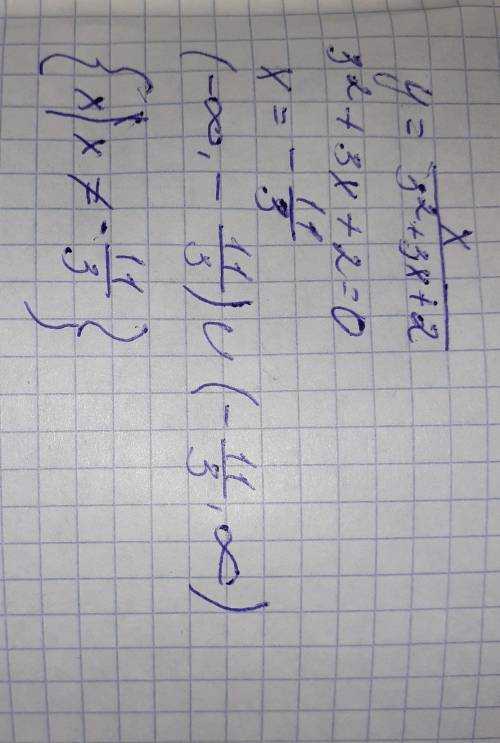 y = x / (3² + 3x + 2)
3² + 3x + 2 = 0
x = - 11/3
(-∞, - 11/3) ∪ (- 11/3, ∞)
{x | x ≠ - 11/3}